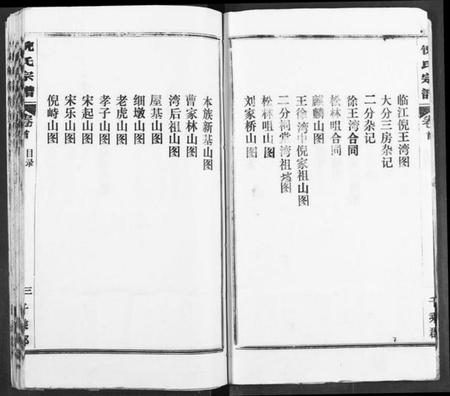 倪氏宗谱
卷首
临江倪王湾图
大分三房杂记
二分杂记
徐王湾合同
松林咀合同
麒麟山图
王徐湾中倪家祖山图
二分祠堂湾祖坟图
松林咀山图
刘家桥山图
千乘郡
本族新基山图
曹家林山图
湾后祖山图
屋基山图
细墩山图
老虎山图
孝子山图
宋起山图
宋乐山图
倪峙山图
倪氏宗谱
卷首
目录
三
千乘郡